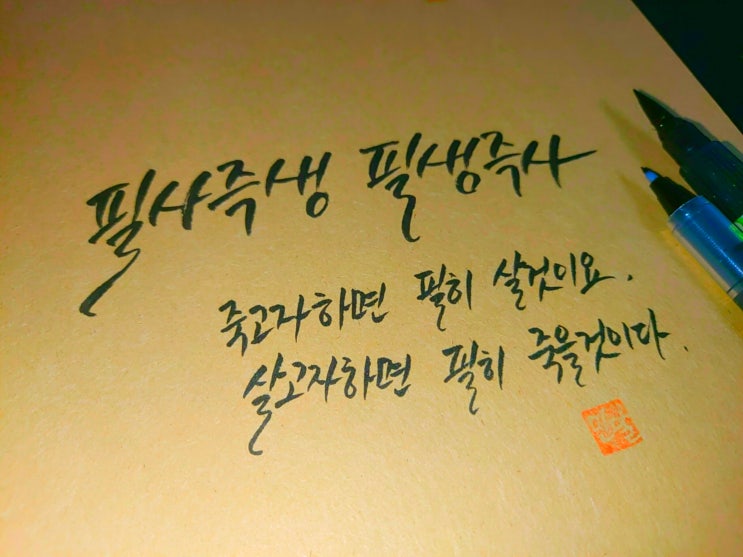 필사즉생 필생즉사
죽고자하면 필히 살것이요.
살고자하면 필히 죽을것이다.